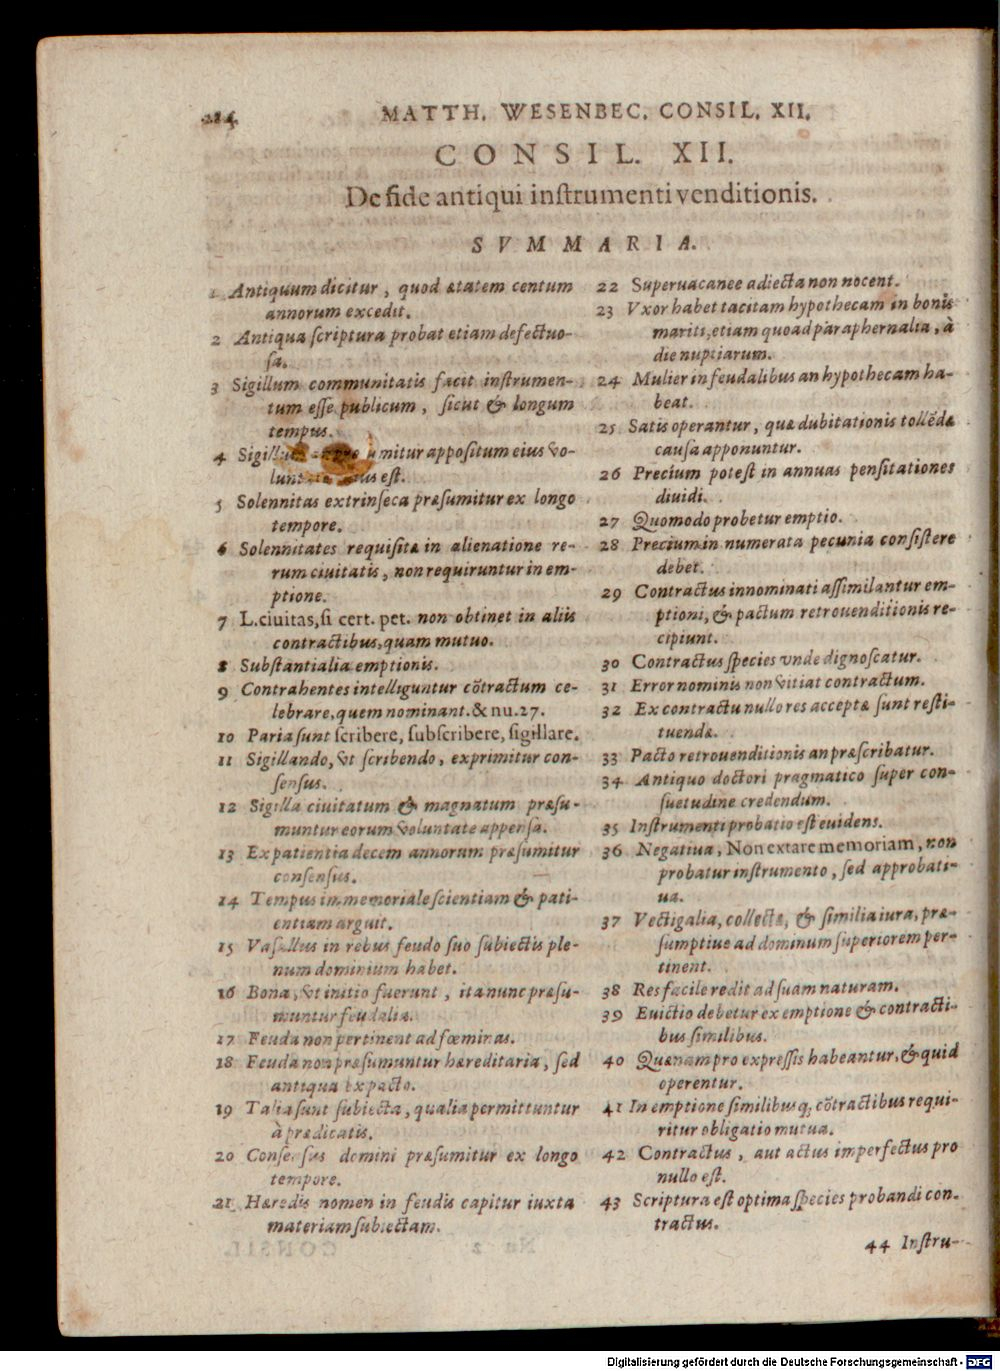 284
MATTH. WESENBEC. CONSIL. XII.
CONSIL. XII.
De fide antiqui inſtrumenti venditionis.
SVMMARIA.
1 Antiquum dicitur, quod ætatem centum
annorum excedit.
2 Antiqua ſcriptura probat etiam defectuo-
ſa.
3 Sigillum communitatis facit inſtrumen-
tum eſſe publicum, ſicut & longum
tempus.
4 umitur appoſitum eius vo-
eſt.
5 Solennitas extrinſeca præſumitur ex longo
tempore.
6 Solennitates requiſitæ in alienatione re-
rum ciuitatis, non requiruntur in em-
ptione.
7 L. ciuitas, ſi cert. pet. non obtinet in aliis
contractibus, quam mutuo.
8 Subſtantialia emptionis.
9 Contrahentes intelliguntur cõtractum ce-
lebrare, quem nominant. & nu. 27.
10 Paria ſunt ſcribere, ſubſcribere, ſigillare.
11 Sigillando, vt ſcribendo, exprimitur con-
ſenſus.
12 Sigilla ciuitatum & magnatum præſu-
muntur eorum voluntate appenſa.
13 Ex patientia decem annorum præſumitur
conſenſus.
14 Tempus immemoriale ſcientiam & pati-
entiam arguit.
15 Vaſallus in rebus feudo ſuo ſubiectis ple-
num dominium habet.
16 Bona, vt initio fuerunt, ita nunc præſu-
muntur feudalia.
17 Feuda non pertinent ad fœminas.
18 Feuda non præſumuntur hæreditaria, ſed
antiqua ex pacto.
19 Talia ſunt ſubiecta, qualia permittuntur
à prædicatis.
20 Conſenſus domini præſumitur ex longo
tempore.
21 Hæredis nomen in feudis capitur iuxta
materiam ſubiectam.
22 Superuacanee adiecta non nocent.
23 Vxor habet tacitam hypothecam in bonis
mariti, etiam quoad paraphernalia, à
die nuptiarum.
24 Mulier in feudalibus an hypothecam ha-
beat.
25 Satis operantur, quæ dubitationis tollẽdæ
cauſa apponuntur.
26 Precium poteſt in annuas penſitationes
diuidi.
27 Quomodo probetur emptio.
28 Precium in numerata pecunia conſiſtere
debet.
29 Contractus innominati aſſimilantur em-
ptioni, & pactum retrouenditionis re-
cipiunt.
30 Contractus ſpecies vnde dignoſcatur.
31 Error nominis non vitiat contractum.
32 Ex contractu nullo res acceptæ ſunt reſti-
tuendæ.
33 Pacto retrouenditionis an præſcribatur.
34 Antiquo doctori pragmatico ſuper con-
ſuetudine credendum.
35 Inſtrumenti probatio eſt euidens.
36 Negatiua, Non extare memoriam, non
probatur inſtrumento, ſed approbati-
ua.
37 Vectigalia, collectæ, & ſimilia iura, præ-
ſumptiue ad dominum ſuperiorem per-
tinent.
38 Res facile redit ad ſuam naturam.
39 Euictio debetur ex emptione & contracti-
bus ſimilibus.
40 Quænam pro expreſſis habeantur, & quid
operentur.
41 In emptione ſimilibusq; cõtractibus requi-
ritur obligatio mutua.
42 Contractus, aut actus imperfectus pro
nullo eſt.
43 Scriptura eſt optima ſpecies probandi con-
tractus.
44 Inſtru-
Digitalisierung gefördert durch die Deutsche Forschungsgemeinschaft - DFG